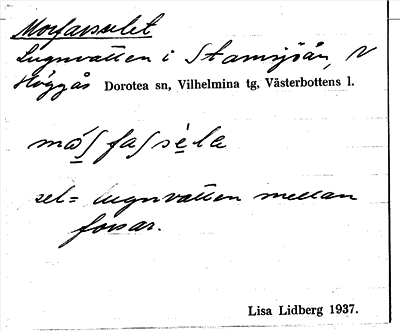 Morfarselet
Lugnvatten i Stamsjöån, V
Höggås Dorotea sn, Vilhelmina tg, Västerbottens l.
sel = lugnvatten mellan
forsar.
Lisa Lidberg 1937.